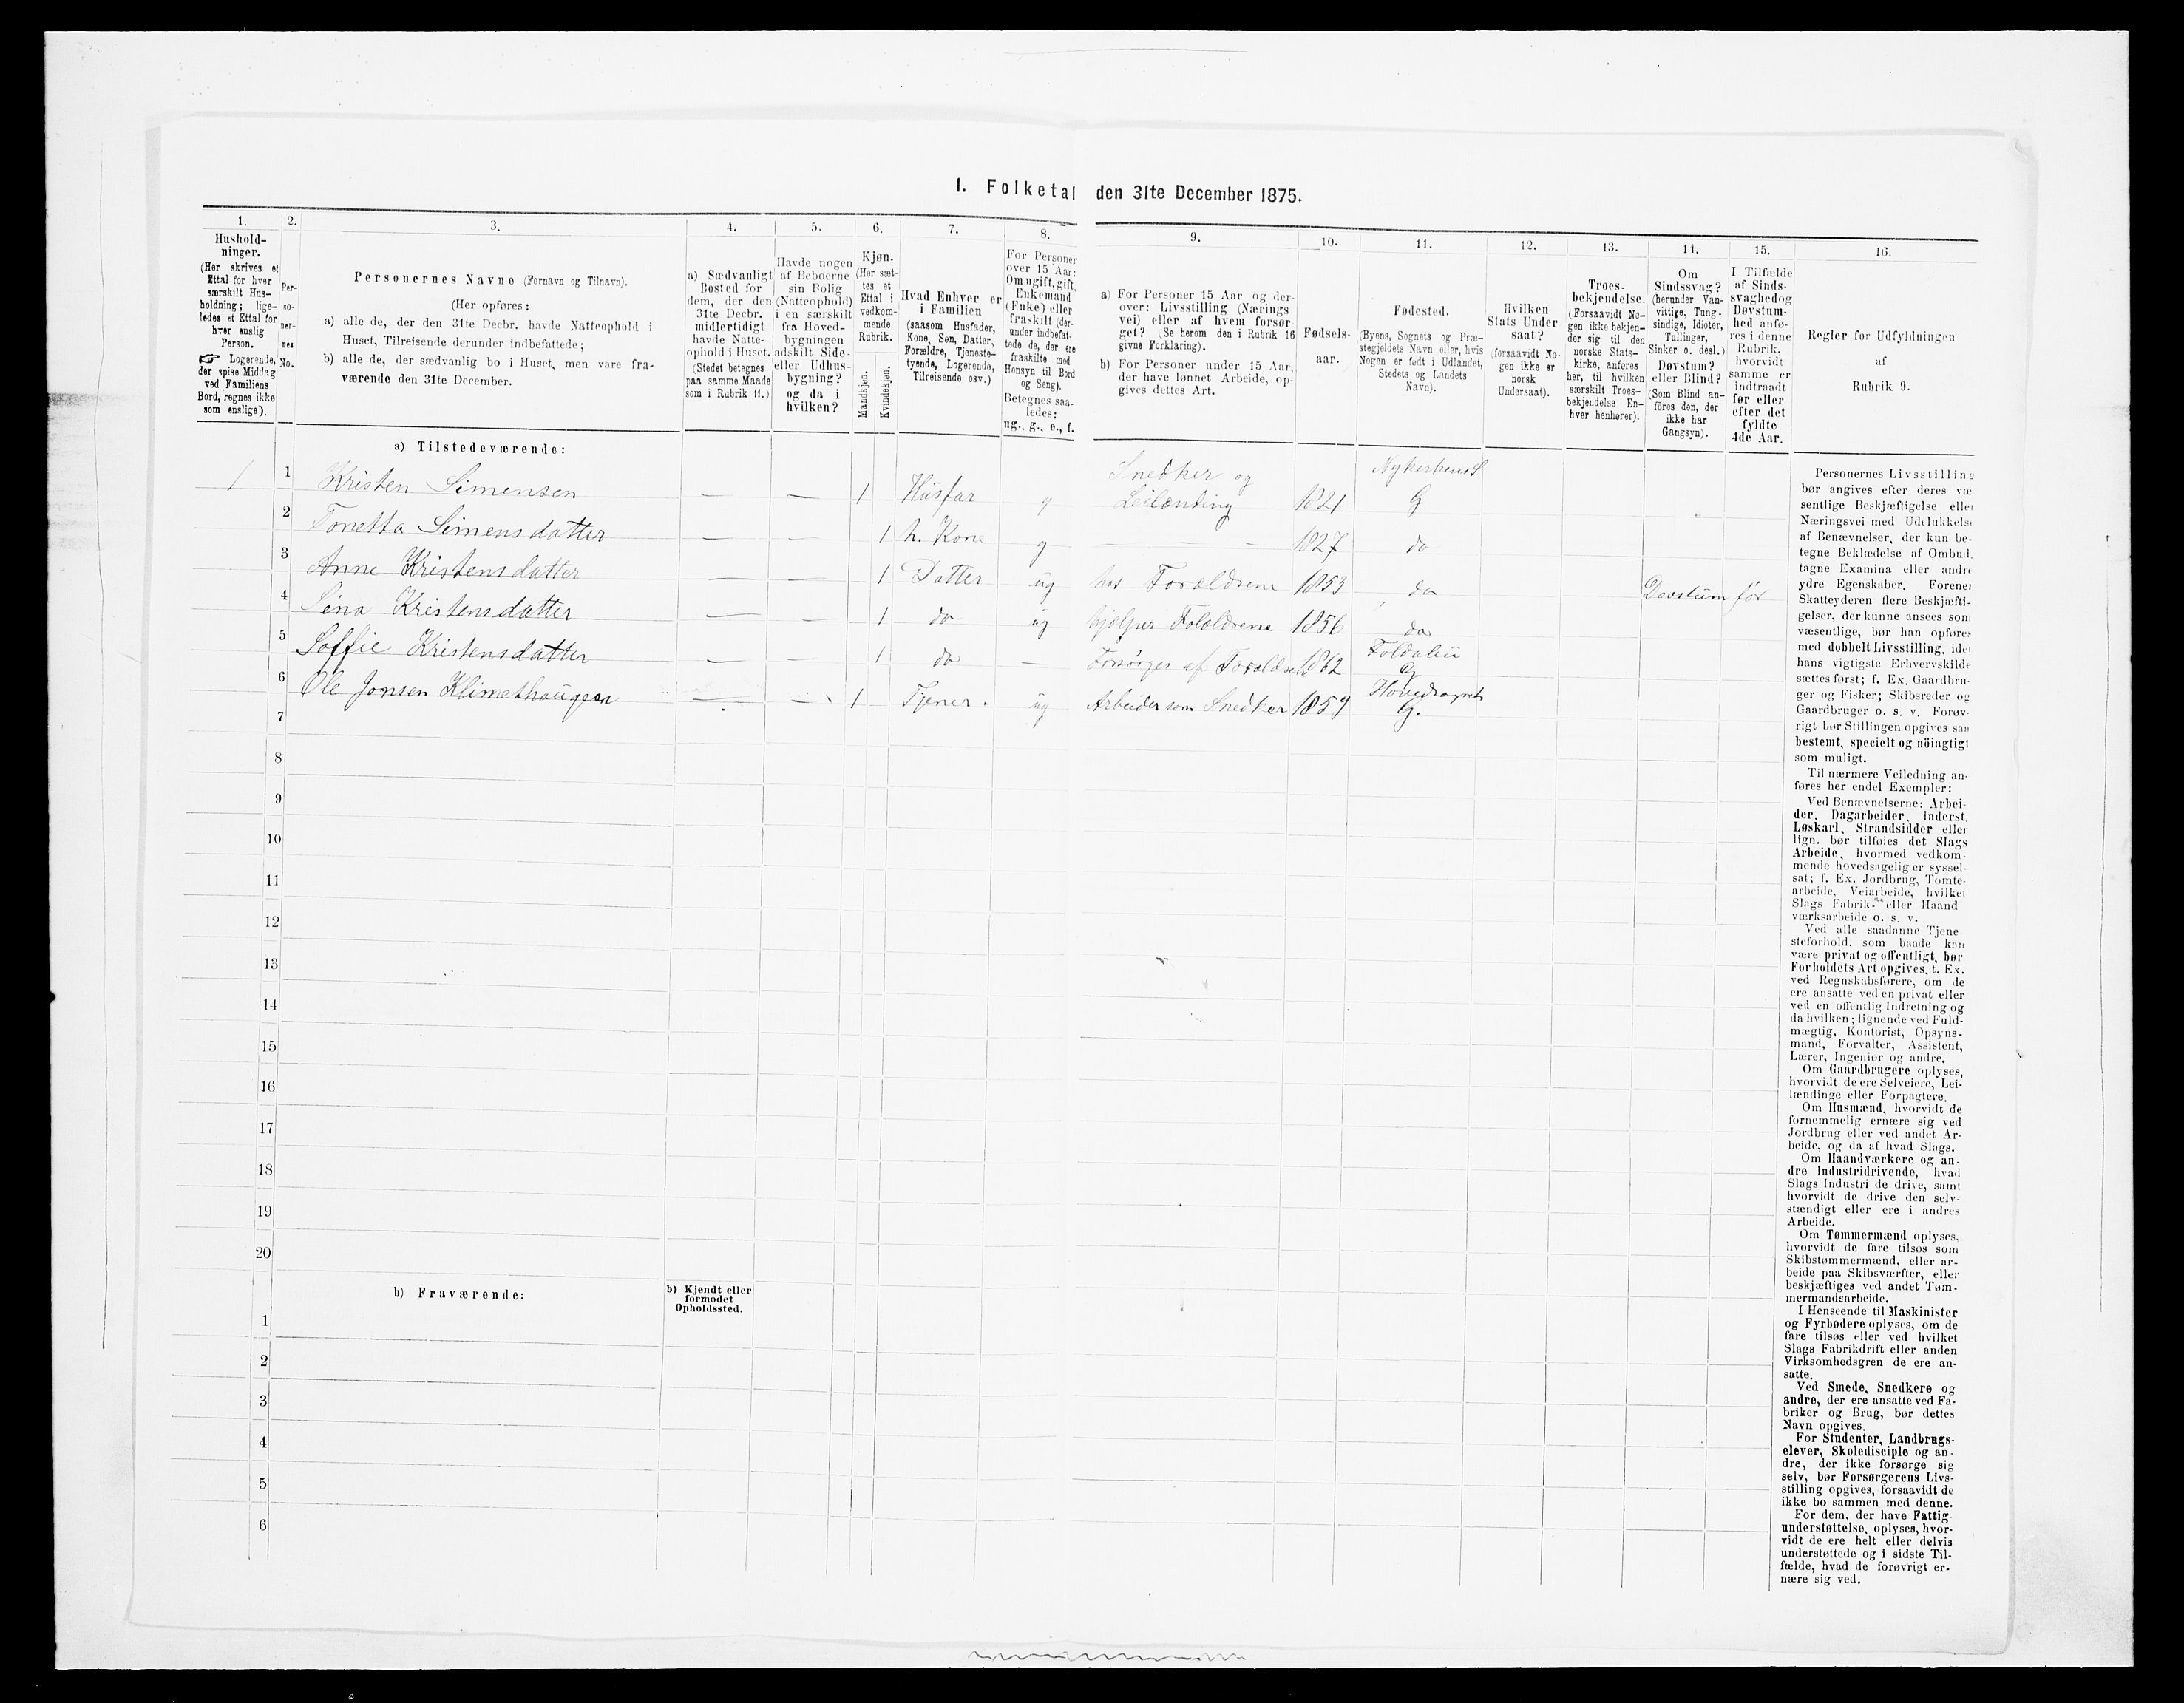 I. Folketal den 31te December 1875.
1.
Hushold-
ninger.
(Her skrives et
Ettal for hver
særskilt Hus-
holdning; lige-
ledes et Ettal for
hver enslig
Person.
☞ Logerende,
der spise Middag
ved Familiens
Bord, regnes ikke
som enslige).
2.
Per-
so-
ner-
nes
No.
3.
Personernes Navne (Fornavn og Tilnavn).
(Her opføres:
a) alle de, der den 31te Decbr. havde Natteophold i
Huset, Tilreisende derunder indbefattede;
b) alle de, der sædvanlig bo i Huset, men vare fra-
værende den 31te December.
4.
a) Sædvanligt
Bosted for
dem, der den
31te Decbr.
midlertidigt
havde Natte-
ophold i Huset.
(Stedet betegnes
paa samme Maade
som i Rubrik 11.)
5.
Havde nogen
af Beboerne
sin Bolig
(Natteophold)
i en særskilt
fra Hoved-
bygningen
adskilt Side-
eller Udhus-
bygning?
og da i
hvilken?
6.
Kjøn.
(Her sæt-
tes et
Ettal i
vedkom-
mende
Rubrik.
Mandkjøn.
Kvindekjøn.
7.
Hvad Enhver er
i Familien
(saasom Husfader,
Kone, Søn, Datter,
Forældre, Tjeneste-
tyende, Logerende,
Tilreisende osv.)
8.
For Personer
over 15 Aar:
Om ugift, gift,
Enkemand
(Enke) eller
fraskilt (der-
under indbefat-
tede de, der ere
fraskilte med
Hensyn til Bord
og Seng).
Betegnes saa-
ledes:
ug., g., e., f.
9.
a) For Personer 15 Aar og der-
over: Livsstilling (Nærings
vei) eller af hvem forsør-
get? (Se herom den i Rubrik 16
givne Forklaring).
b) For Personer under 15 Aar,
der have lønnet Arbeide, op-
gives dettes Art.
10.
Fødsels-
aar.
11.
Fødested.
(Byens, Sognets og Præ-
stegjeldets Navn eller, hvis
Nogen er født i Udlandet,
Stedets og Landets
Navn).
12.
Hvilken
Stats Under
saat?
(forsaavidt No-
gen ikke er
norsk
Undersaat).
13.
Troes-
bekjendelse.
(Forsaavidt No-
gen ikke bekjen-
der sig til den
norske Stats-
kirke, anføres
her, til hvilken
særskilt Troes-
bekjendelse En-
hver henhører).
14.
Om
Sindssvag?
(herunder Van-
vittige, Tung-
sindige, Idioter,
Tullinger,
Sinker o. desl.)
Døvstum?
eller Blind?
(Som Blind an-
föres den, der
ikke har
Gangsyn).
15.
I Tilfælde
af Sinds-
svaghedog
Døvstum-
hed anfø-
res i denne
Rubrik,
hvorvidt
samme er
indtraadt
før eller
efter det
fyldte
4de Aar.
16.
Regler for Udfyldningen
af
Rubrik 9.
a) Tilstedeværende:
1 1 Kristen Simensen — — 1 Husfar g Snedker og Leilænding 1821 G
2 Tonetta Simensdatter — — 1 h. Kone g — — — 1827 do
3 Anne Kristensdatter — — 1 Datter ug hos Forældrene 1853 do Dovstum før
4 Sina Kristensdatter — — 1 do ug hjælper Forældrene 1856 do
5 Soffie Kristensdatter — — 1 do — Forsörges af Forældrene 1862 Foldalen G
6 Ole Jonsen Klimethaugen — — 1 Tjener. ug Arbeider som Snedker 1859 G.
7
8
9
10
11
12
13
14
15
16
17
18
19
20
b) Fraværende:
b) Kjendt eller
formodet
Opholdssted.
1
2
3
4
5
6
Personernes Livsstilling
bør angives efter deres væ
sentlige Beskjæftigelse eller
Næringsvei med Udelukkelse
af Benævnelser, der kun be-
tegne Beklædelse af Ombud,
tagne Examina eller andre
ydre Egenskaber. Forener
Skatteyderen flere Beskjæfti-
gelser, der kunne ansees som
væsentlige, bør han opføres
med dobbelt Livsstilling, idet
hans vigtigste Erhvervskilde
sættes først; f. Ex. Gaardbru-
ger og Fisker; Skibsreder og
Gaardbruger o. s. v. Forøv-
rigt bør Stillingen opgives saa
bestemt, specielt og nöiagtigt
som muligt.
Til nærmere Veiledning an-
føres her endel Exempler:
Ved Benævnelserne: Arbei-
der, Dagarbeider, Inderst,
Løskarl, Strandsidder eller
lign. bør tilføies det Slags
Arbeide, hvormed vedkom-
mende hovedsagelig er syssel-
sat; f. Ex. Jordbrug, Tomte-
arbeide, Veiarbeide, hvilket
Slags Fabrik- eller Haand
værksarbeide o. s. v.
Ved alle saadanne Tjene
steforhold, som baade kan
være privat og offentligt, bør
Forholdets Art opgives, t. Ex.
ved Regnskabsførere, om de
ere ansatte ved en privat eller
ved en offentlig Indretning og
da hvilken; lignende ved Fuld-
mægtig, Kontorist, Opsyns-
mand, Forvalter, Assistent,
Lærer, Ingeniør og andre.
Om Gaardbrugere oplyses,
hvorvidt de ere Selveiere, Lei-
lændinge eller Forpagtere.
Om Husmænd, hvorvidt de
fornemmelig ernære sig ved
Jordbrug eller ved andet Ar-
beide, og da af hvad Slags.
Om Haandværkere og an-
dre Industridrivende, hvad
Slags Industri de drive, samt
hvorvidt de drive den selv-
stændigt eller ere i andres
Arbeide.
Om Tømmermænd oplyses,
hvorvidt de fare tilsøs som
Skibstømmermænd, eller ar-
beide paa Skibsværfter, eller
beskjæftiges ved andet Tøm-
mermandsarbeide.
I Henseende til Maskinister
og Fyrbødere oplyses, om de
fare tilsøs eller ved hvilket
Slags Fabrikdrift eller anden
Virksomhedsgren de ere an-
satte.
Ved Smede, Snedkere og
andre, der ere ansatte ved Fa-
briker og Brug, bør dettes
Navn opgives.
For Studenter, Landbrugs-
elever, Skoledisciple og an-
dre, der ikke forsørge sig
selv, bør Forsørgerens Livs-
stilling opgives, forsaavidt de
ikke bo sammen med denne.
For dem, der have Fattig-
understøttelse, oplyses, hvor-
vidt de ere helt eller delvis
understøttede og i sidste Til-
fælde, hvad de forøvrigt er-
nære sig ved.